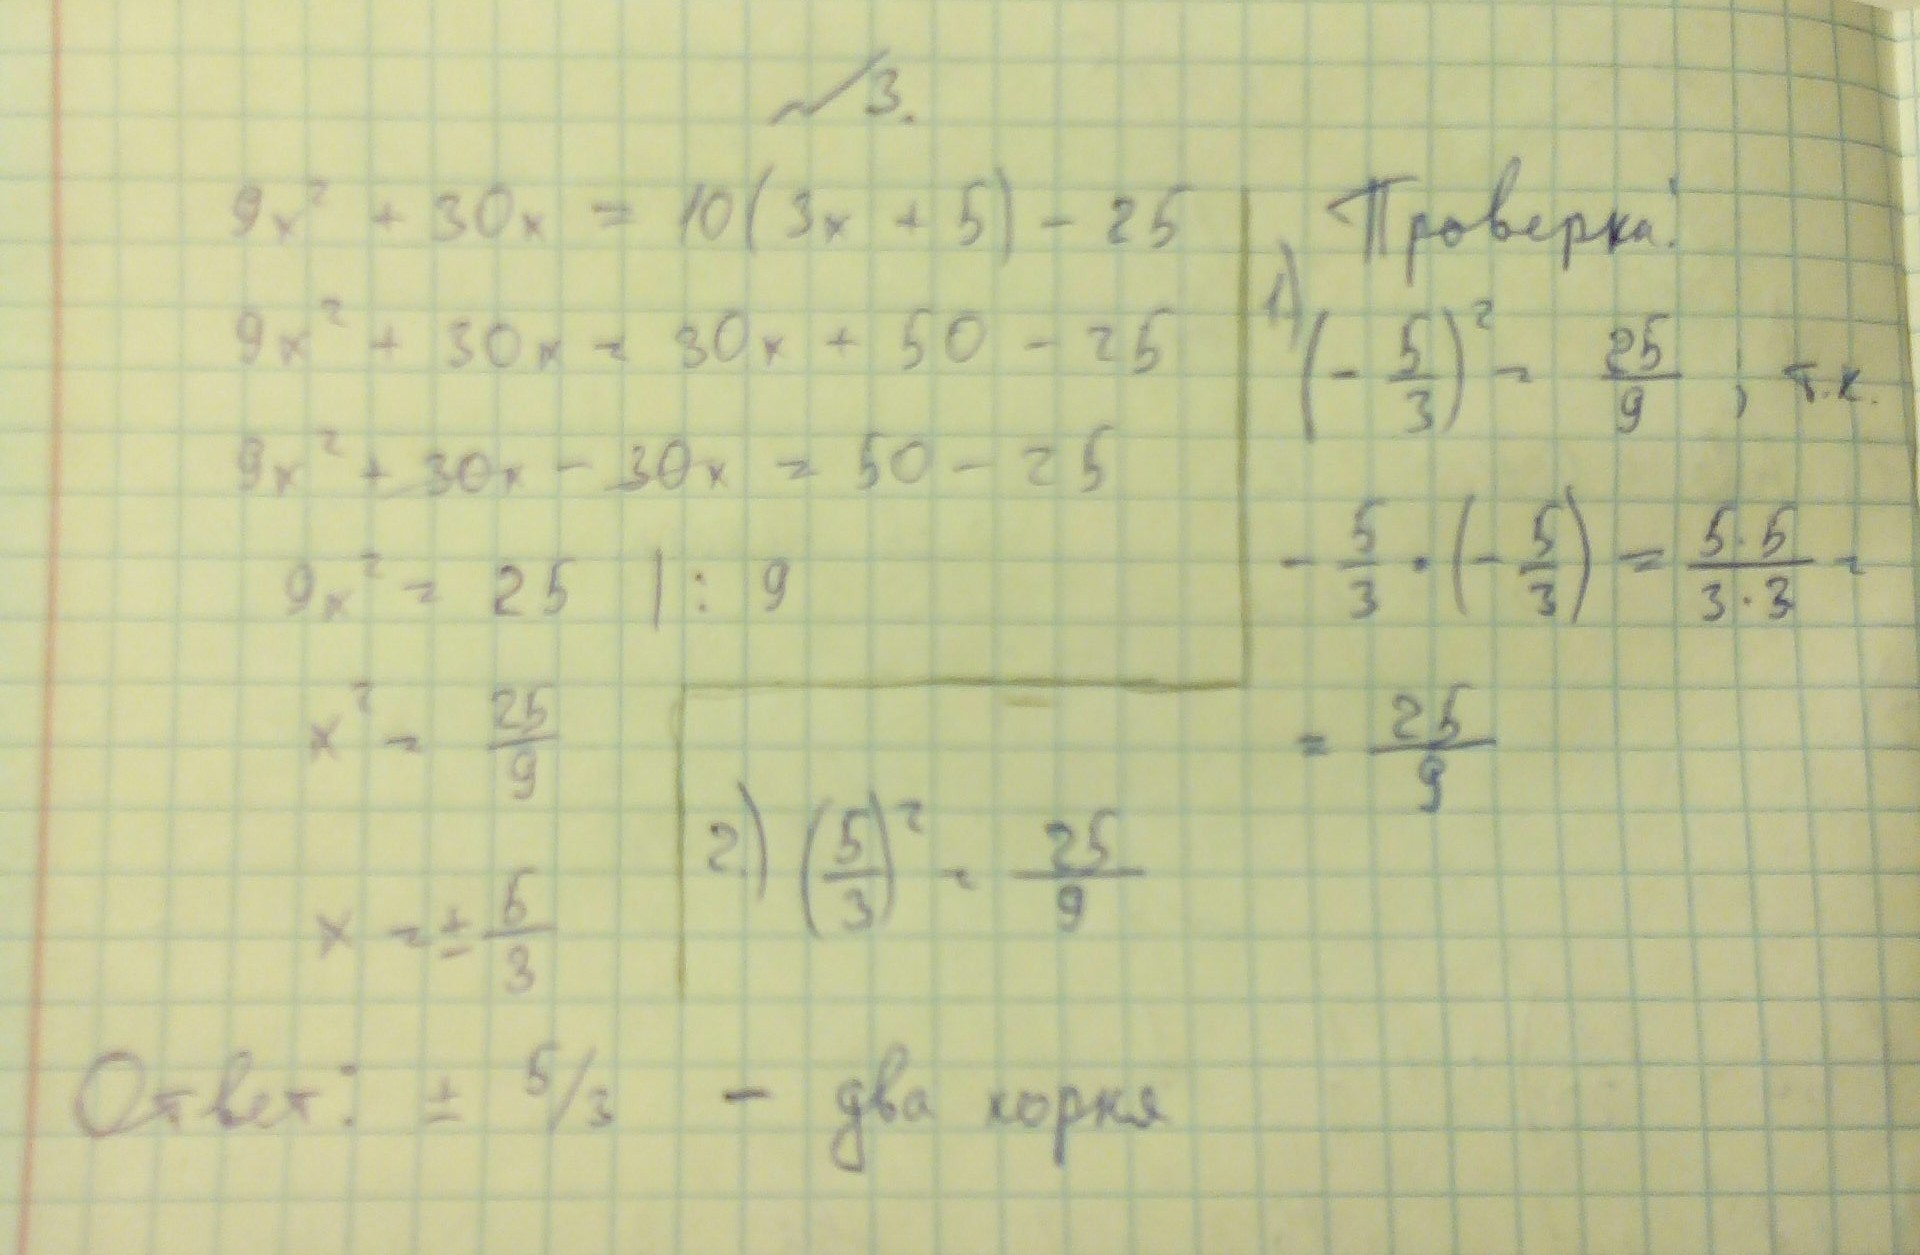 №3.
9x² + 30x = 10(3x + 5) - 25
9x² + 30x = 30x + 50 - 25
9x² + 30x - 30x = 50 - 25
9x² = 25 | : 9
x² = 25/9
x = ± 5/3
Проверка:
1) (- 5/3)² = 25/9 ; т.к.
- 5/3 · (- 5/3) = 5·5/3·3 =
= 25/9
2) (5/3)² = 25/9
Ответ: ± 5/3 - два корня